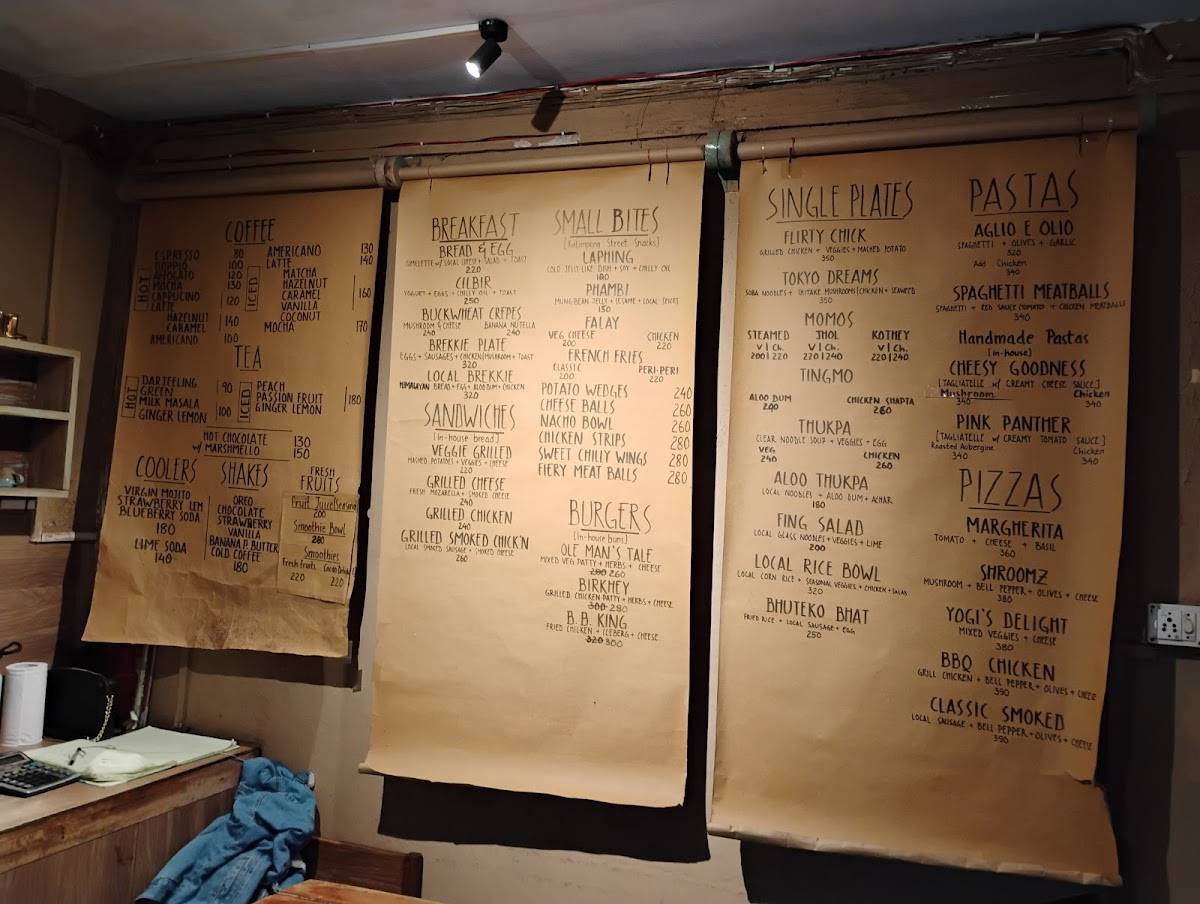 COFFEE
HOT
ESPRESSO 80
DOPPIO 100
AFFOGATO 120
MOCHA 130
CAPPUCINO
LATTE 120
HAZELNUT
CARAMEL 140
AMERICANO 100
ICED
AMERICANO 130
LATTE 140
MATCHA
HAZELNUT
CARAMEL 160
VANILLA
COCONUT
MOCHA 170
TEA
HOT
DARJEELING 90
GREEN
MILK MASALA
GINGER LEMON 100
ICED
PEACH
PASSION FRUIT 180
GINGER LEMON
HOT CHOCOLATE 130
w/ MARSHMELLO 150
COOLERS
VIRGIN MOJITO
STRAWBERRY LEM
BLUEBERRY SODA
180
LIME SODA
140
SHAKES
OREO
CHOCOLATE
STRAWBERRY
VANILLA
BANANA P. BUTTER
COLD COFFEE
180
FRESH
FRUITS
200
Smoothie Bowl
280
Smoothies
Fresh Fruits
220
220
BREAKFAST
BREAD & EGG
OMELETTE w/ LOCAL CHEESE + SALAD + TOAST
220
CILBIR
YOGURT + EGGS + CHILLY OIL + TOAST
250
BUCKWHEAT CREPES
MUSHROOM & CHEESE BANANA NUTELLA
240 240
BREKKIE PLATE
EGGS + SAUSAGES + CHICKEN/MUSHROOM + TOAST
320
LOCAL BREKKIE
HIMALAYAN BREAD + EGG + ALOODUM + CHICKEN
320
SANDWICHES
[In-house bread]
VEGGIE GRILLED
MASHED POTATOES + VEGGIES + CHEESE
220
GRILLED CHEESE
FRESH MOZARELLA + SMOKED CHEESE
240
GRILLED CHICKEN
240
GRILLED SMOKED CHICK'N
LOCAL SMOKED SAUSAGE + SMOKED CHEESE
260
SMALL BITES
[Kalimpong Street Snacks]
LAPHING
COLD JELLY-LIKE DISH + SOY + CHILLY OIL
180
PHAMBI
MUNG-BEAN JELLY + SESAME + LOCAL SPICES
150
FALAY
VEG CHEESE CHICKEN
200 220
FRENCH FRIES
CLASSIC PERI-PERI
200 220
POTATO WEDGES 240
CHEESE BALLS 260
NACHO BOWL 260
CHICKEN STRIPS 280
SWEET CHILLY WINGS 280
FIERY MEAT BALLS 280
BURGERS
[In-house buns]
OLE MAN'S TALE
MIXED VEG PATTY + HERBS + CHEESE
280 260
BIRKHEY
GRILLED CHICKEN PATTY + HERBS + CHEESE
300 280
B.B. KING
FRIED CHICKEN + ICEBERG + CHEESE
320 300
SINGLE PLATES
FLIRTY CHICK
GRILLED CHICKEN + VEGGIES + MASHED POTATO
350
TOKYO DREAMS
SOBA NOODLES + SHITAKE MUSHROOMS/CHICKEN + SEAWEED
350
MOMOS
STEAMED JHOL KOTHEY
V | Ch. V | Ch. V | Ch.
200 | 220 220 | 240 220 | 240
TINGMO
ALOO DUM CHICKEN SHAPTA
200 260
THUKPA
CLEAR NOODLE SOUP + VEGGIES + EGG
VEG CHICKEN
240 260
ALOO THUKPA
LOCAL NOODLES + ALOO DUM + ACHAR
180
FING SALAD
LOCAL GLASS NOODLES + VEGGIES + LIME
200
LOCAL RICE BOWL
LOCAL CORN RICE + SEASONAL VEGGIES + CHICKEN + SALAD
320
BHUTEKO BHAT
FRIED RICE + LOCAL SAUSAGE + EGG
250
PASTAS
AGLIO E OLIO
SPAGHETTI + OLIVES + GARLIC
320
Add Chicken
340
SPAGHETTI MEATBALLS
SPAGHETTI + RED SAUCE (TOMATO) + CHICKEN MEATBALLS
340
Handmade Pastas
[in-house]
CHEESY GOODNESS
[TAGLIATELLE w/ CREAMY CHEESE SAUCE]
Mushroom Chicken
340 340
PINK PANTHER
[TAGLIATELLE w/ CREAMY TOMATO SAUCE]
Roasted Aubergine Chicken
340 340
PIZZAS
MARGHERITA
TOMATO + CHEESE + BASIL
360
SHROOMZ
MUSHROOM + BELL PEPPER + OLIVES + CHEESE
380
YOGI'S DELIGHT
MIXED VEGGIES + CHEESE
380
BBQ CHICKEN
GRILL CHICKEN + BELL PEPPER + OLIVES + CHEESE
390
CLASSIC SMOKED
LOCAL SAUSAGE + BELL PEPPER + OLIVES + CHEESE
390